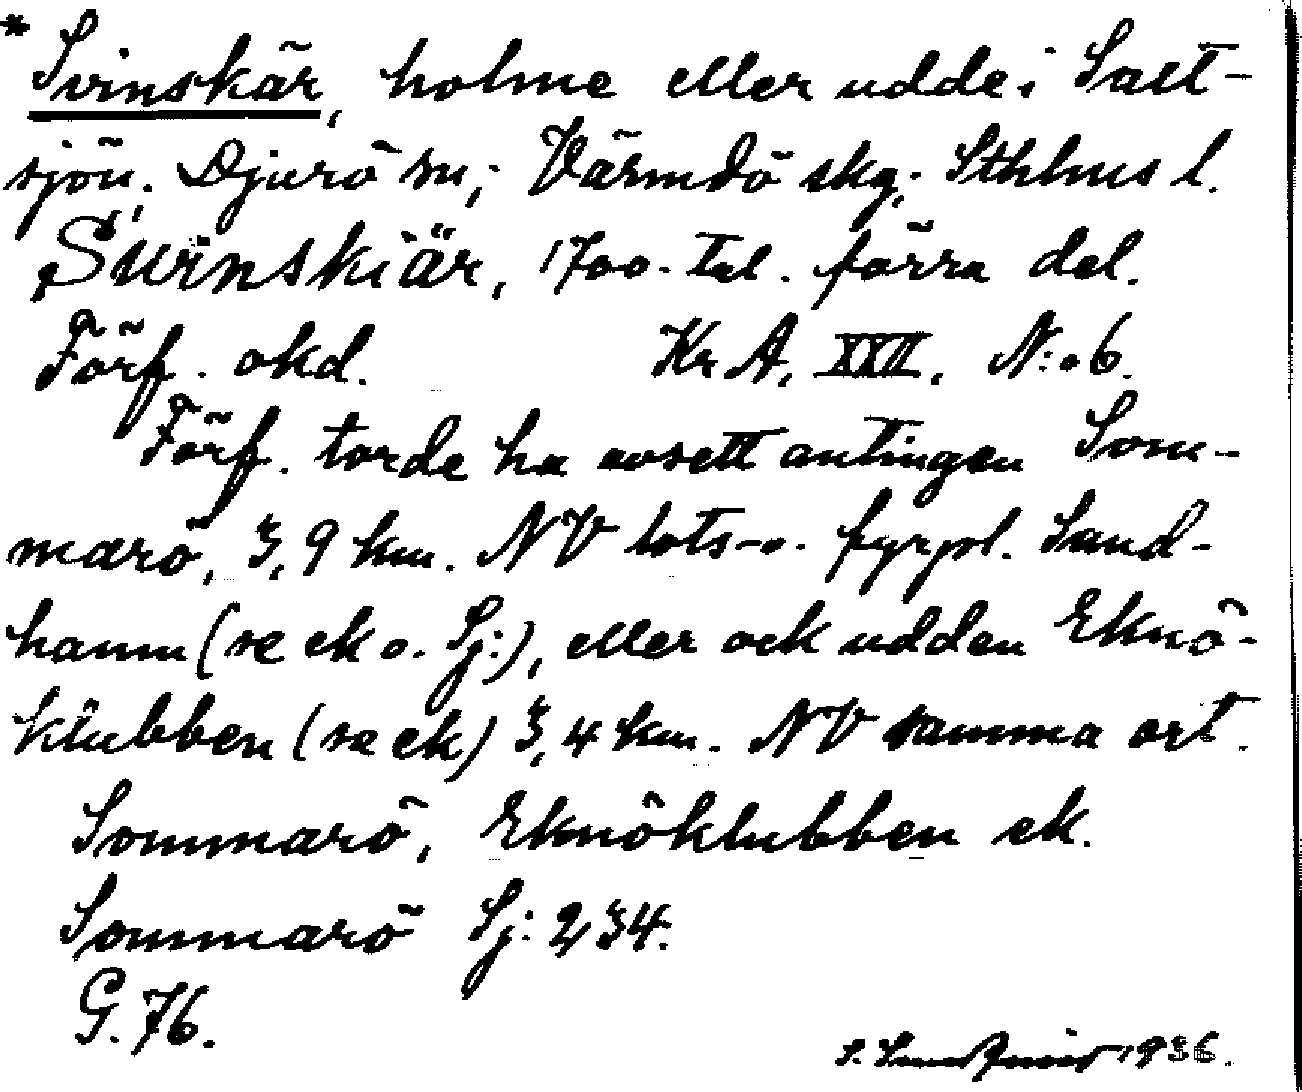 * Svinskär, holme eller udde i Salt-
sjön; Djurö sn; Värmdö skg; Sthlms l.
Swinskiär, 1700-tal. förra del.
Förf. okd. Kr A, XXII. N:o 6.
Förf. torde ha avsett antingen Som-
marö, 3,9 km. NV lots- o. fyrpl. Sand-
hamn (se ek o. Sj:), eller ock udden Eknö-
klubben (se ek) 3,4 km. NV samma ort.
Sommarö, Eknöklubben ek.
Sommarö Sj: 234.
G. 76.
1936.